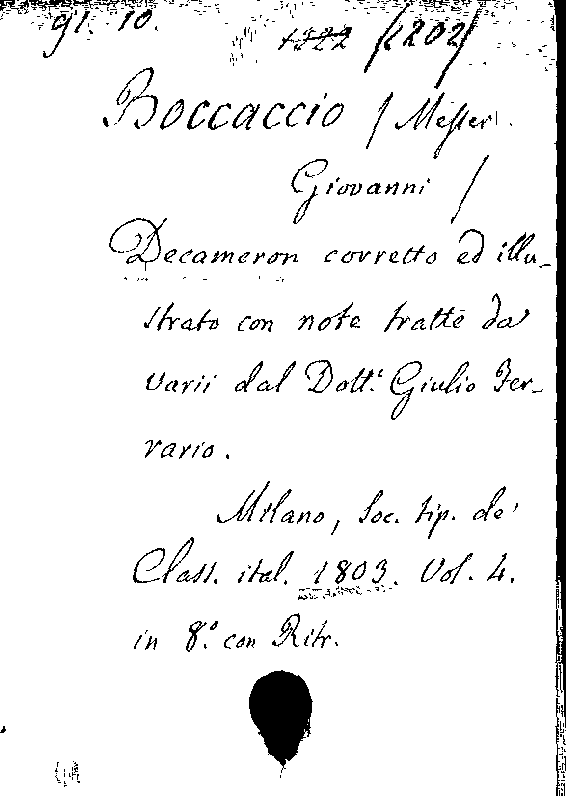 gl. 10.
1322 /1202/
Boccaccio / Messer
Giovanni /
Decameron corretto ed illu-
strato con note tratte da
varii dal Dott.r Giulio Fer-
rario.
Milano, Soc. tip. de'
Class. ital. 1803. Vol. 4.
in 8.o con Ritr.